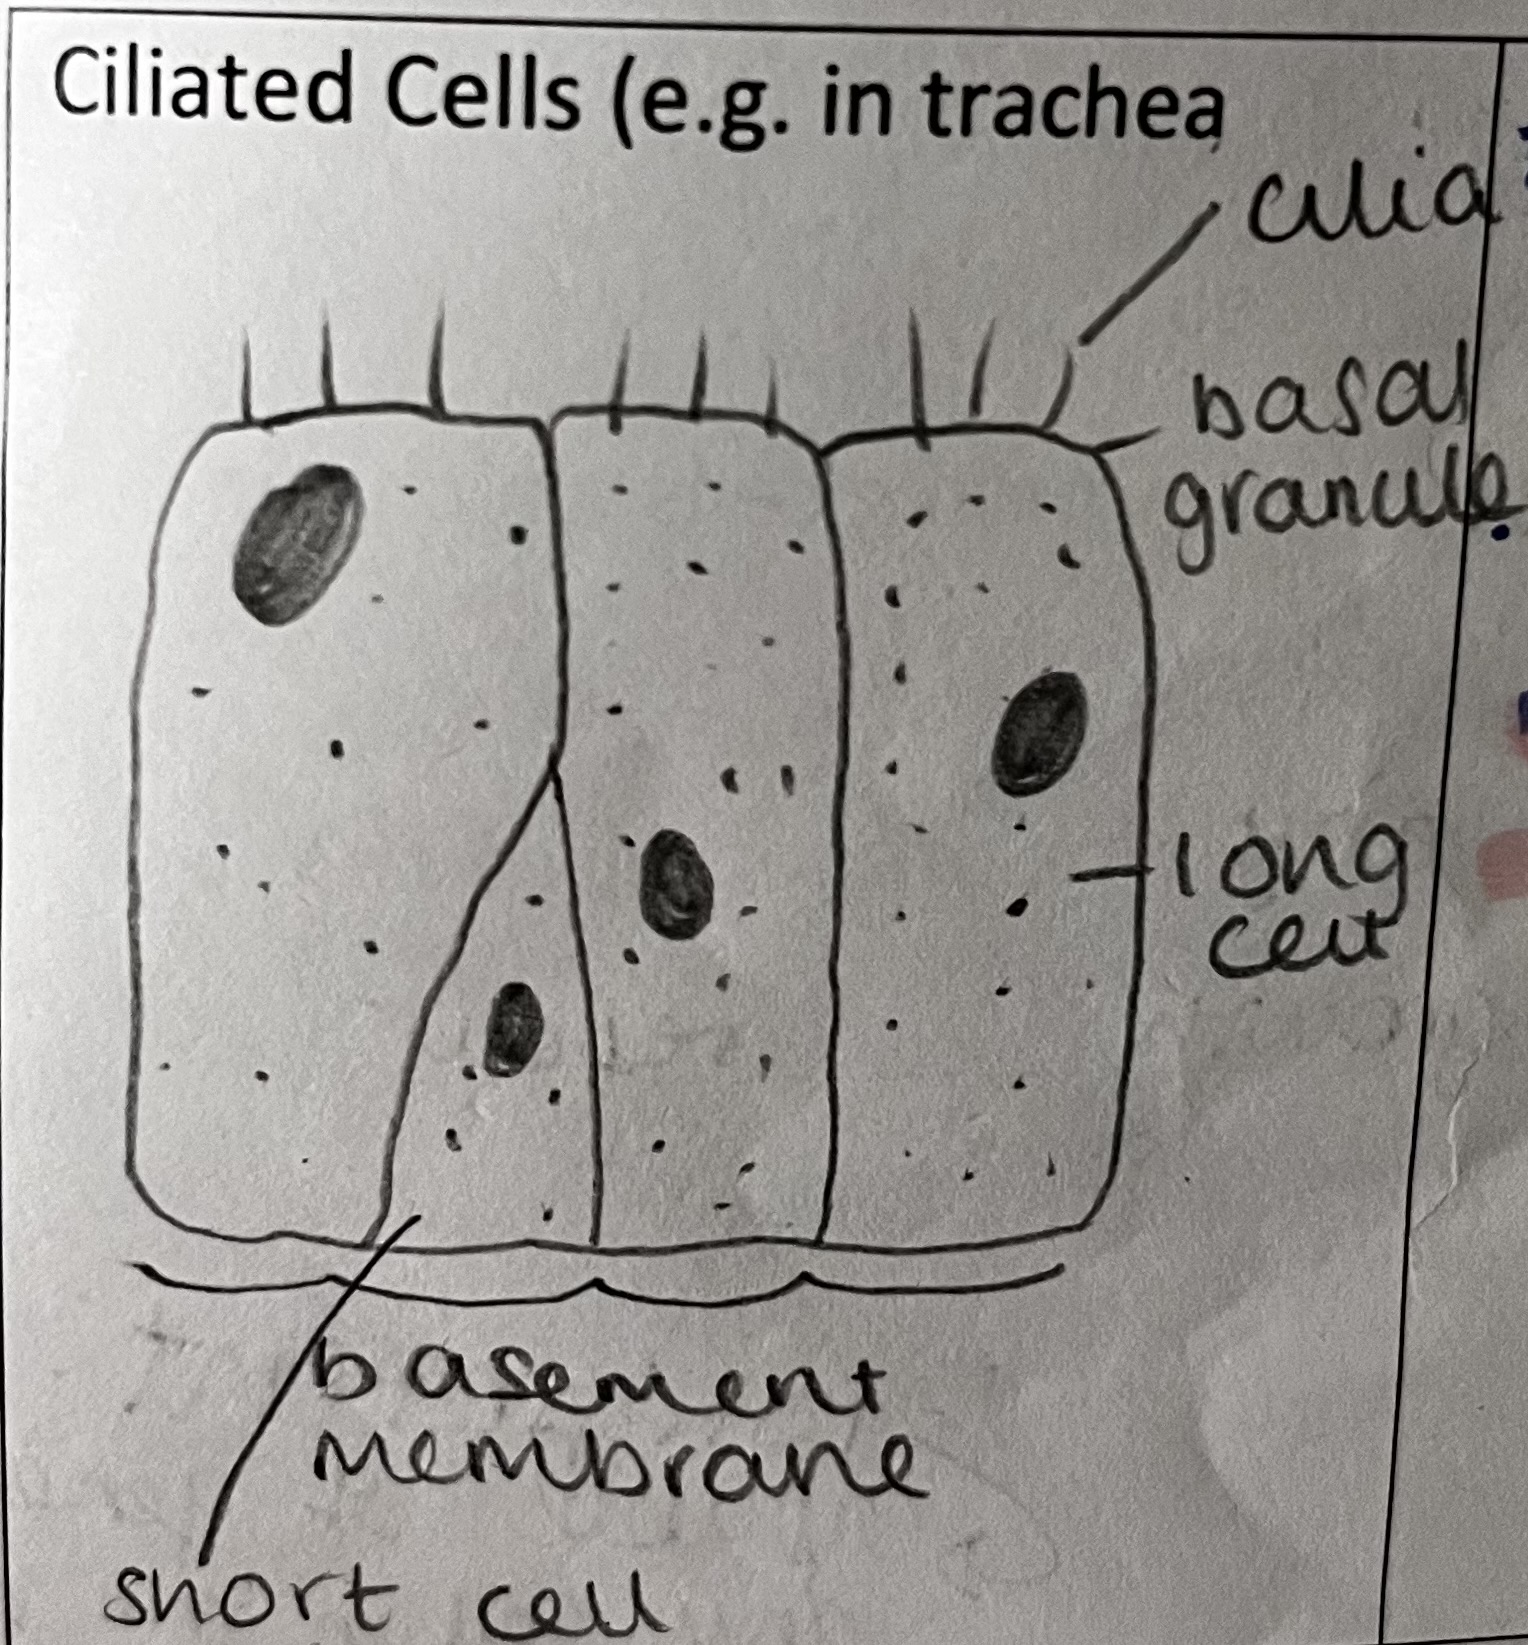 Ciliated Cells (e.g. in trachea
cilia
basal
granule
long
cell
basement
membrane
short cell